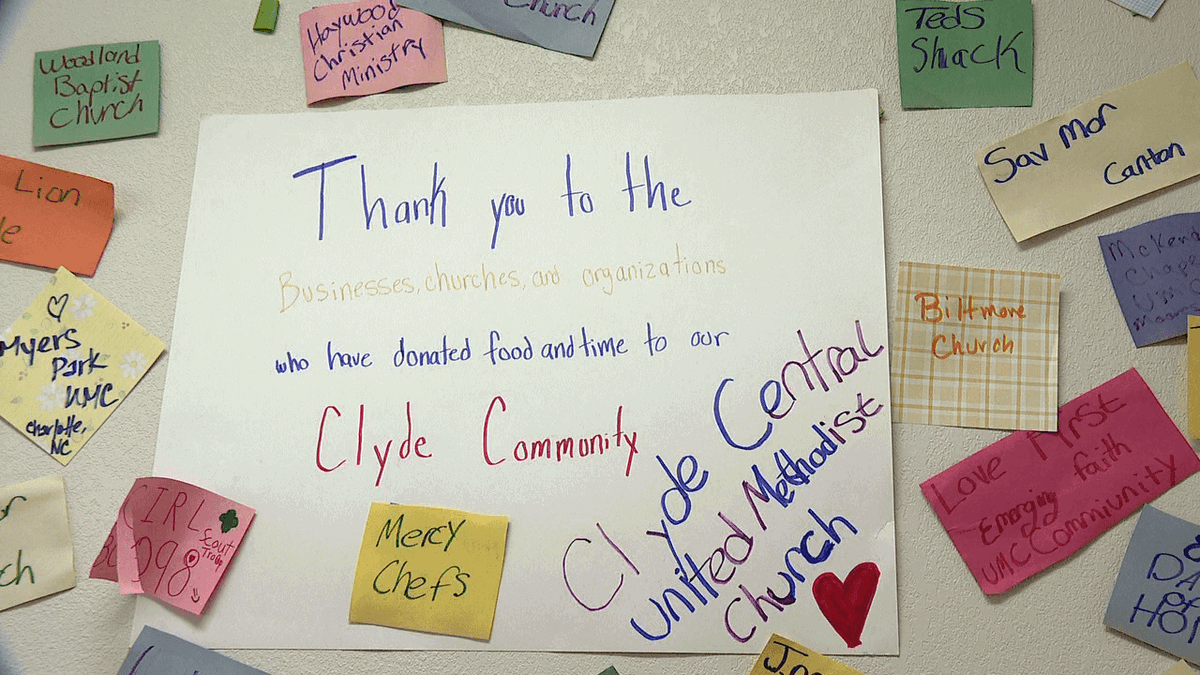 Church
Haywood
Christian
Ministry
Teds
Shack
Woodland
Baptist
Church
Sav Mor
Canton
Lion
Thank you to the
Businesses, churches, and organizations
who have donated food and time to our
Clyde Community
Clyde Central
United Methodist
Church
Biltmore
Church
Myers
Park
UMC
Charlotte,
NC
Love First
Emerging faith
UMC Community
GIRL
Scout
Troop
Mercy
Chefs